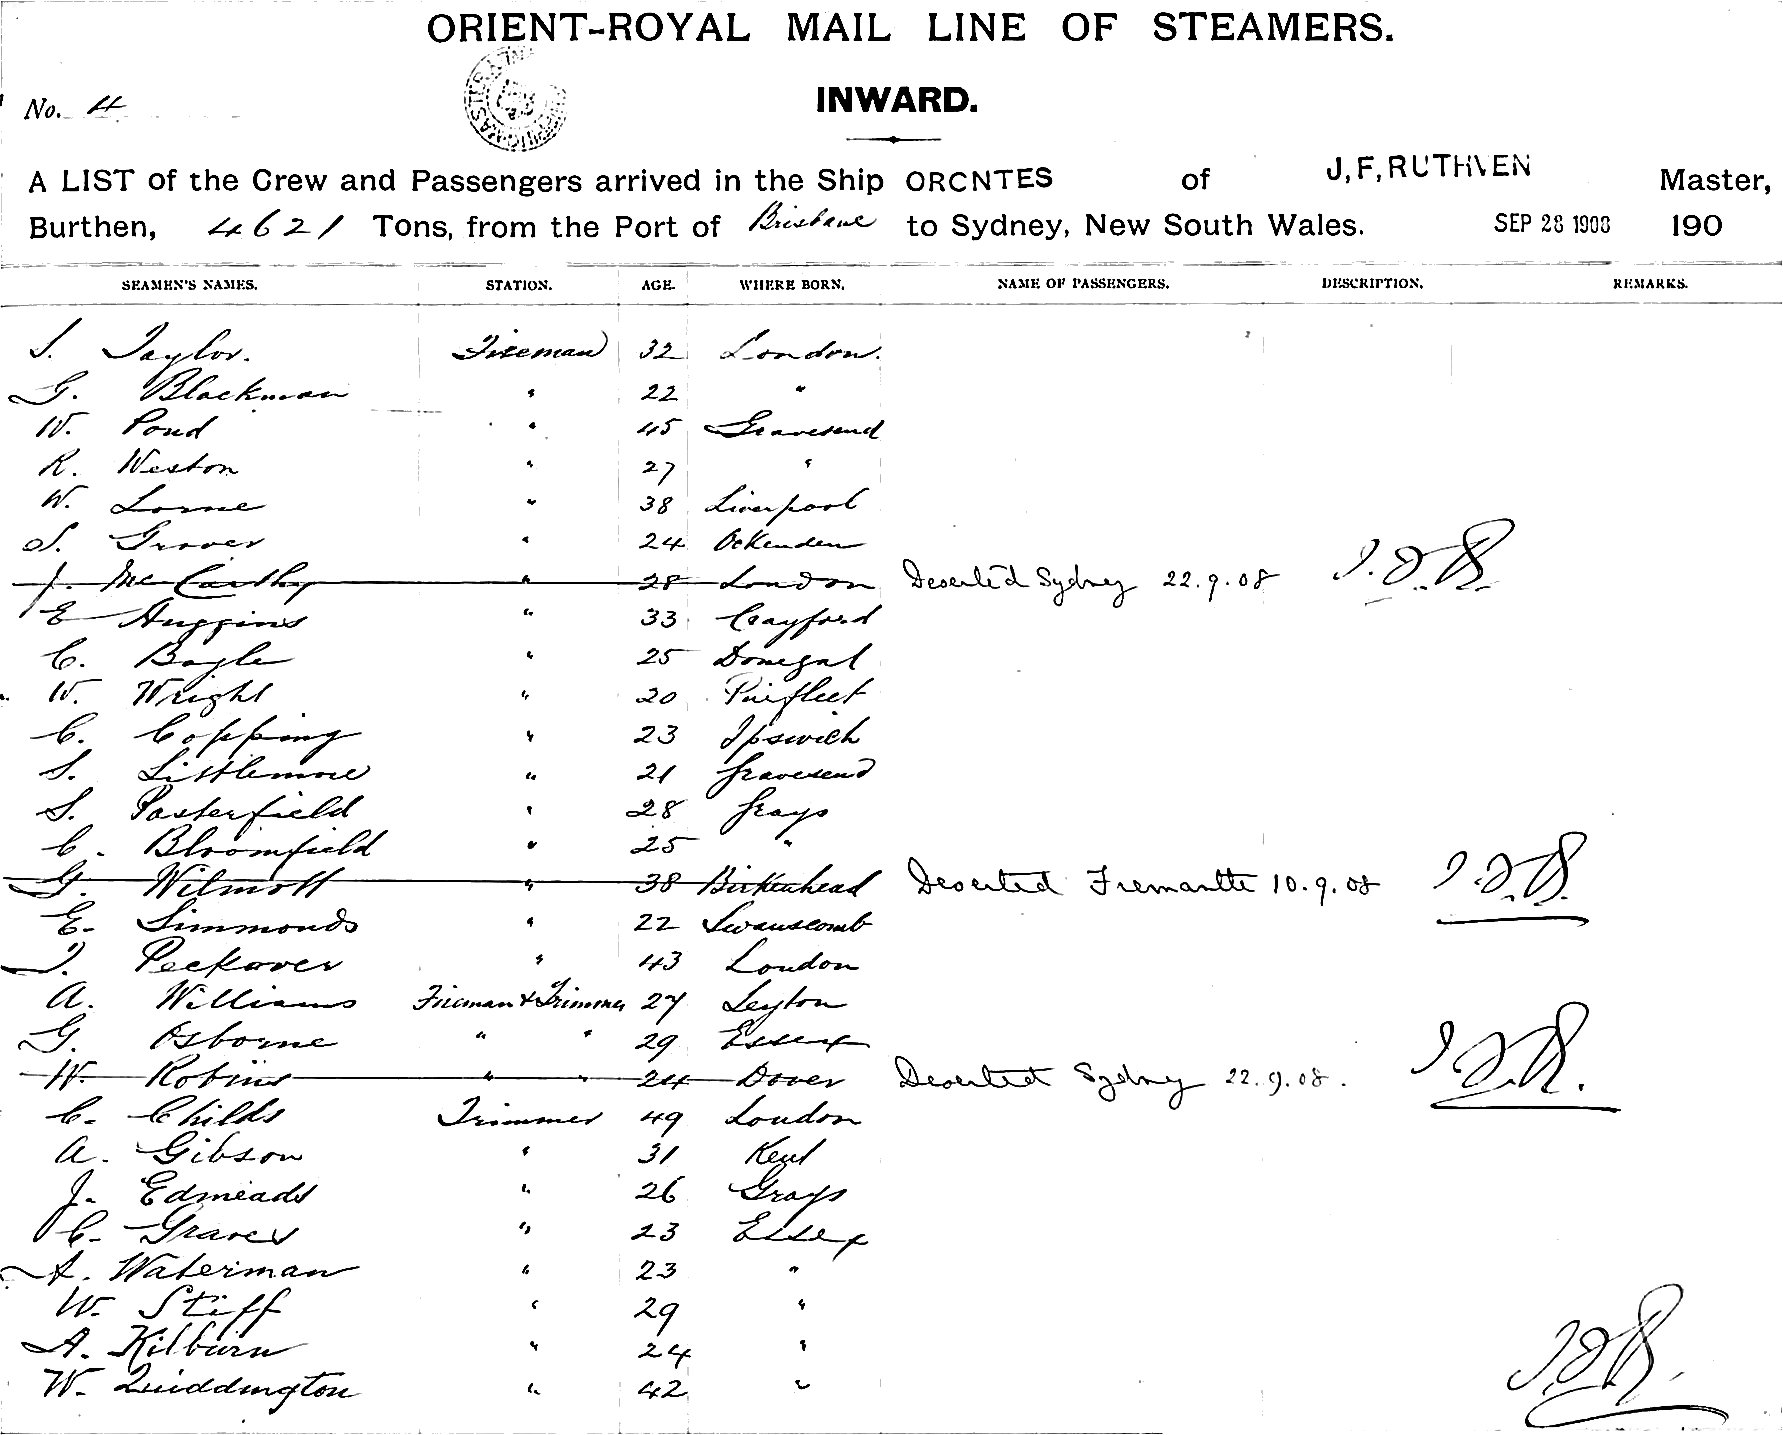 ORIENT-ROYAL MAIL LINE OF STEAMERS.
No. 4
INWARD.
A LIST of the Crew and Passengers arrived in the Ship ORCNTES of J,F,RUTHVEN Master,
Burthen, 4621 Tons, from the Port of Brisbane to Sydney, New South Wales. SEP 28 1908 190
SEAMEN'S NAMES. STATION. AGE. WHERE BORN. NAME OF PASSENGERS. DESCRIPTION. REMARKS.
S. Taylor. Fireman 32 London.
G. Blackman " 22 "
W. Pond " 45 Gravesend
R. Weston " 27 "
W. Lorne " 38 Liverpool
S. Grover " 24 Ockenden
J. Mc Carthy " 28 London Deserted Sydney 22.9.08
E Huggins " 33 Crayford
C. Boyle " 25 Donegal
W. Wright " 20 Purfleet
C. Copping " 23 Ipswich
S. Littlemore " 21 Gravesend
S. Pasterfield " 28 Grays
C. Bloomfield " 25 "
G. Wilmott " 38 Birkenhead Deserted Fremantle 10.9.08
E. Simmonds " 22 Swanscomb
J. Peckover " 43 London
A. Williams Fireman & Trimmer 27 Leyton
G. Osborne " " 29 Essex
W. Robins " " 24 Dover Deserted Sydney 22.9.08.
C. Childs Trimmer 49 London
A. Gibson " 31 Kent
J. Edmeads " 26 Grays
C. Graves " 23 Essex
A. Waterman " 23 "
W. Stiff " 29 "
A. Kilburn " 24 "
W. Quiddington " 42 "